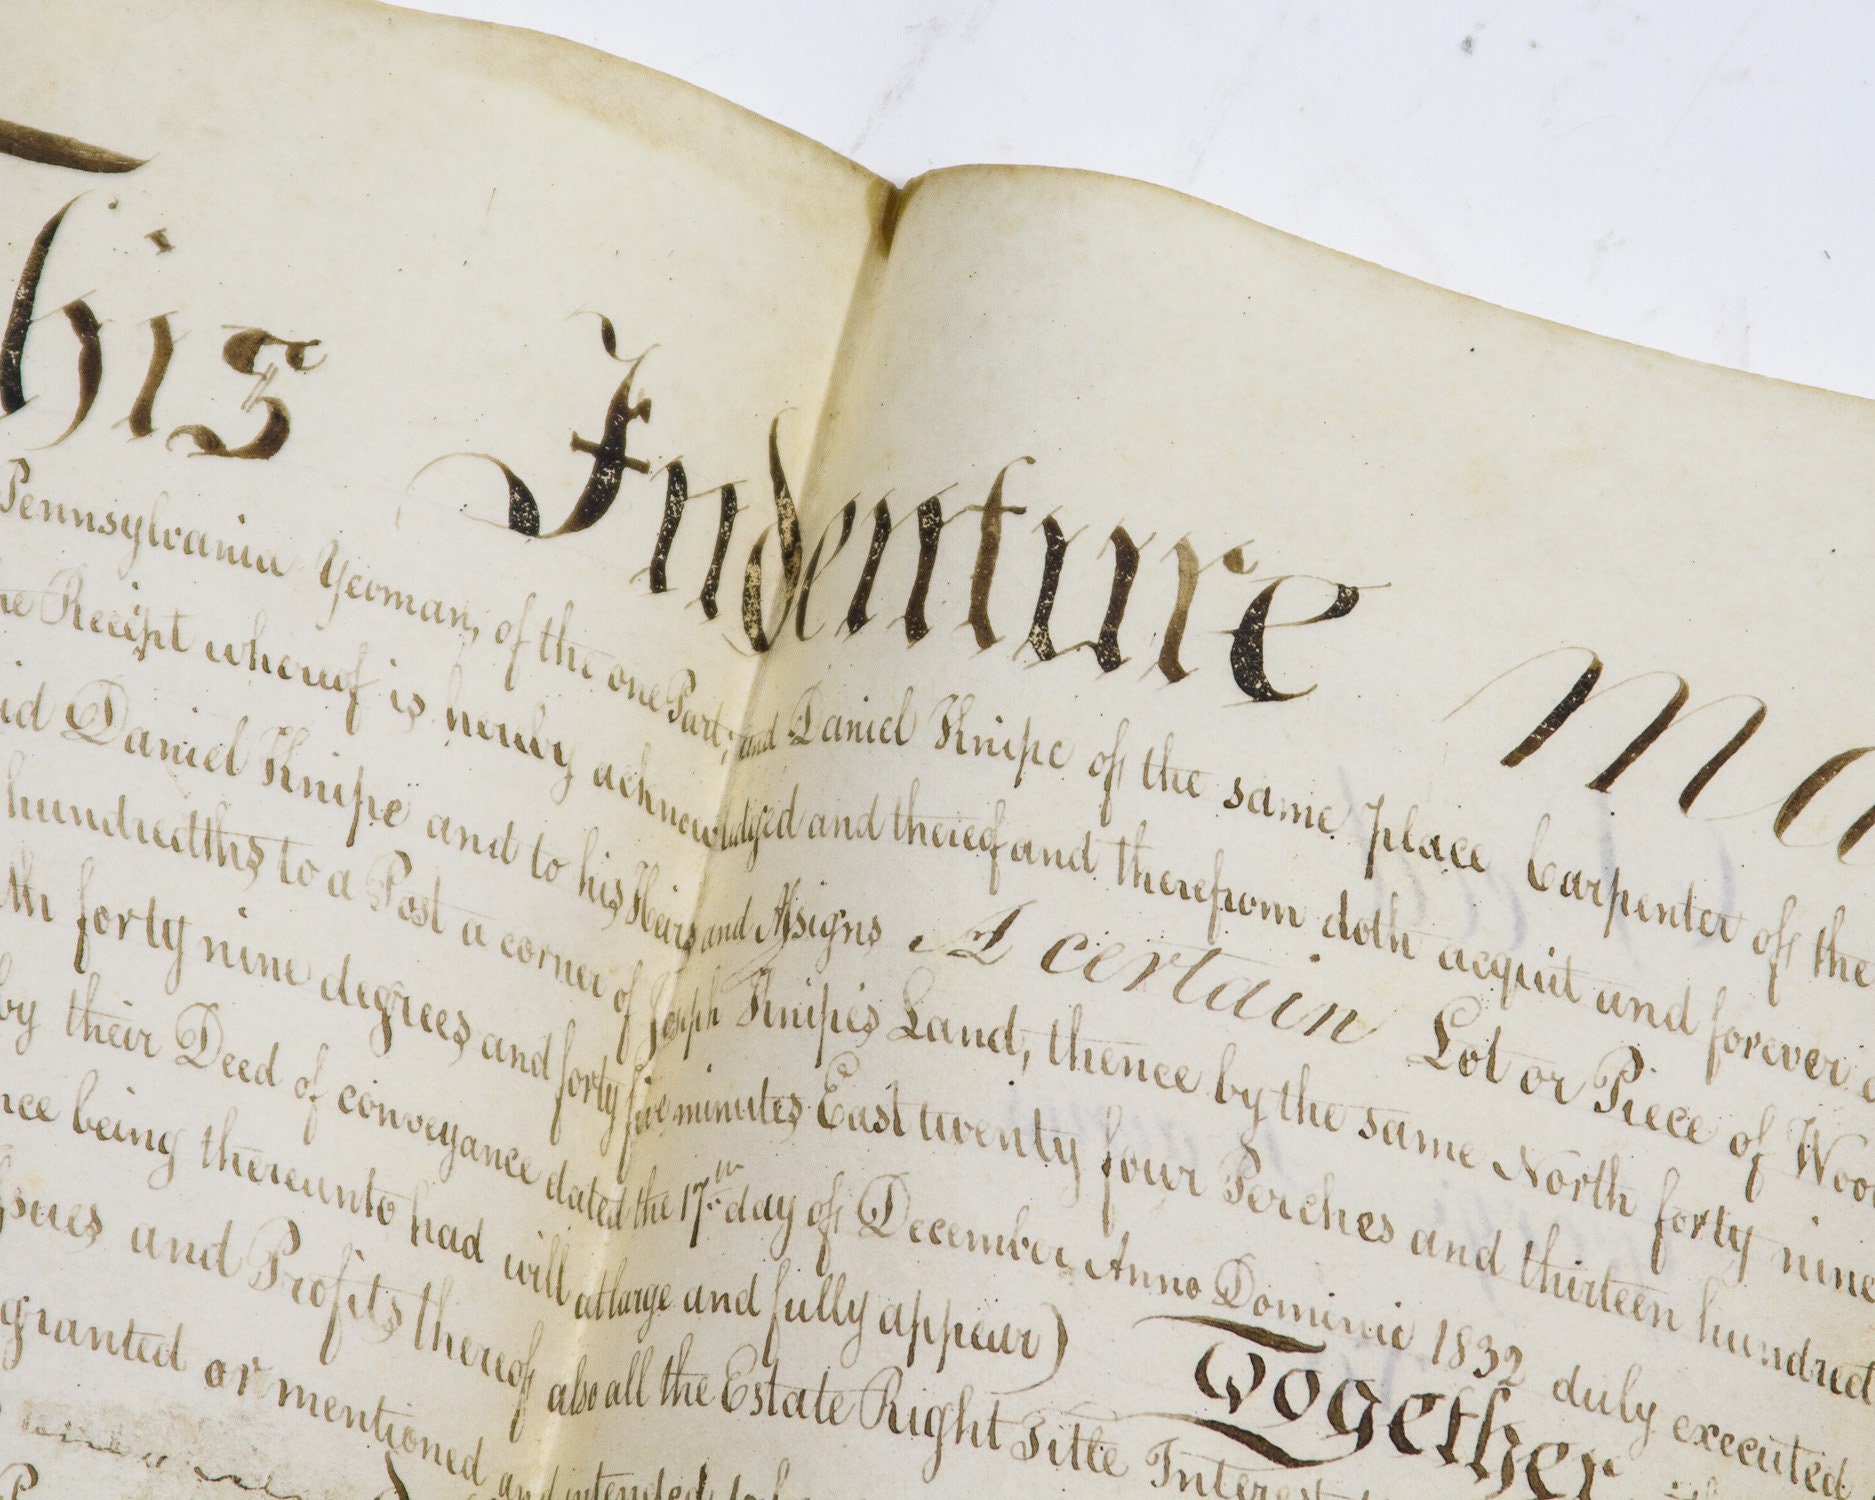 This Indenture Ma
Pennsylvania Yeoman, of the one Part; and Daniel Knipe of the same place Carpenter of the
he Receipt whereof is hereby acknowledged and thereof and therefrom doth acquit and forever
id Daniel Knipe and to his Heirs and Assigns A certain Lot or Piece of Woo
hundredths to a Post a corner of Joseph Knipe's Land, thence by the same North forty nine
th forty nine degrees and forty five minutes East twenty four Perches and thirteen hundred
by their Deed of conveyance dated the 17th day of December Anno Domini 1832 duly executed
nce being thereunto had will at large and fully appear) Together
ssues and Profits thereof also all the Estate Right Title Interest
granted or mentioned and intended